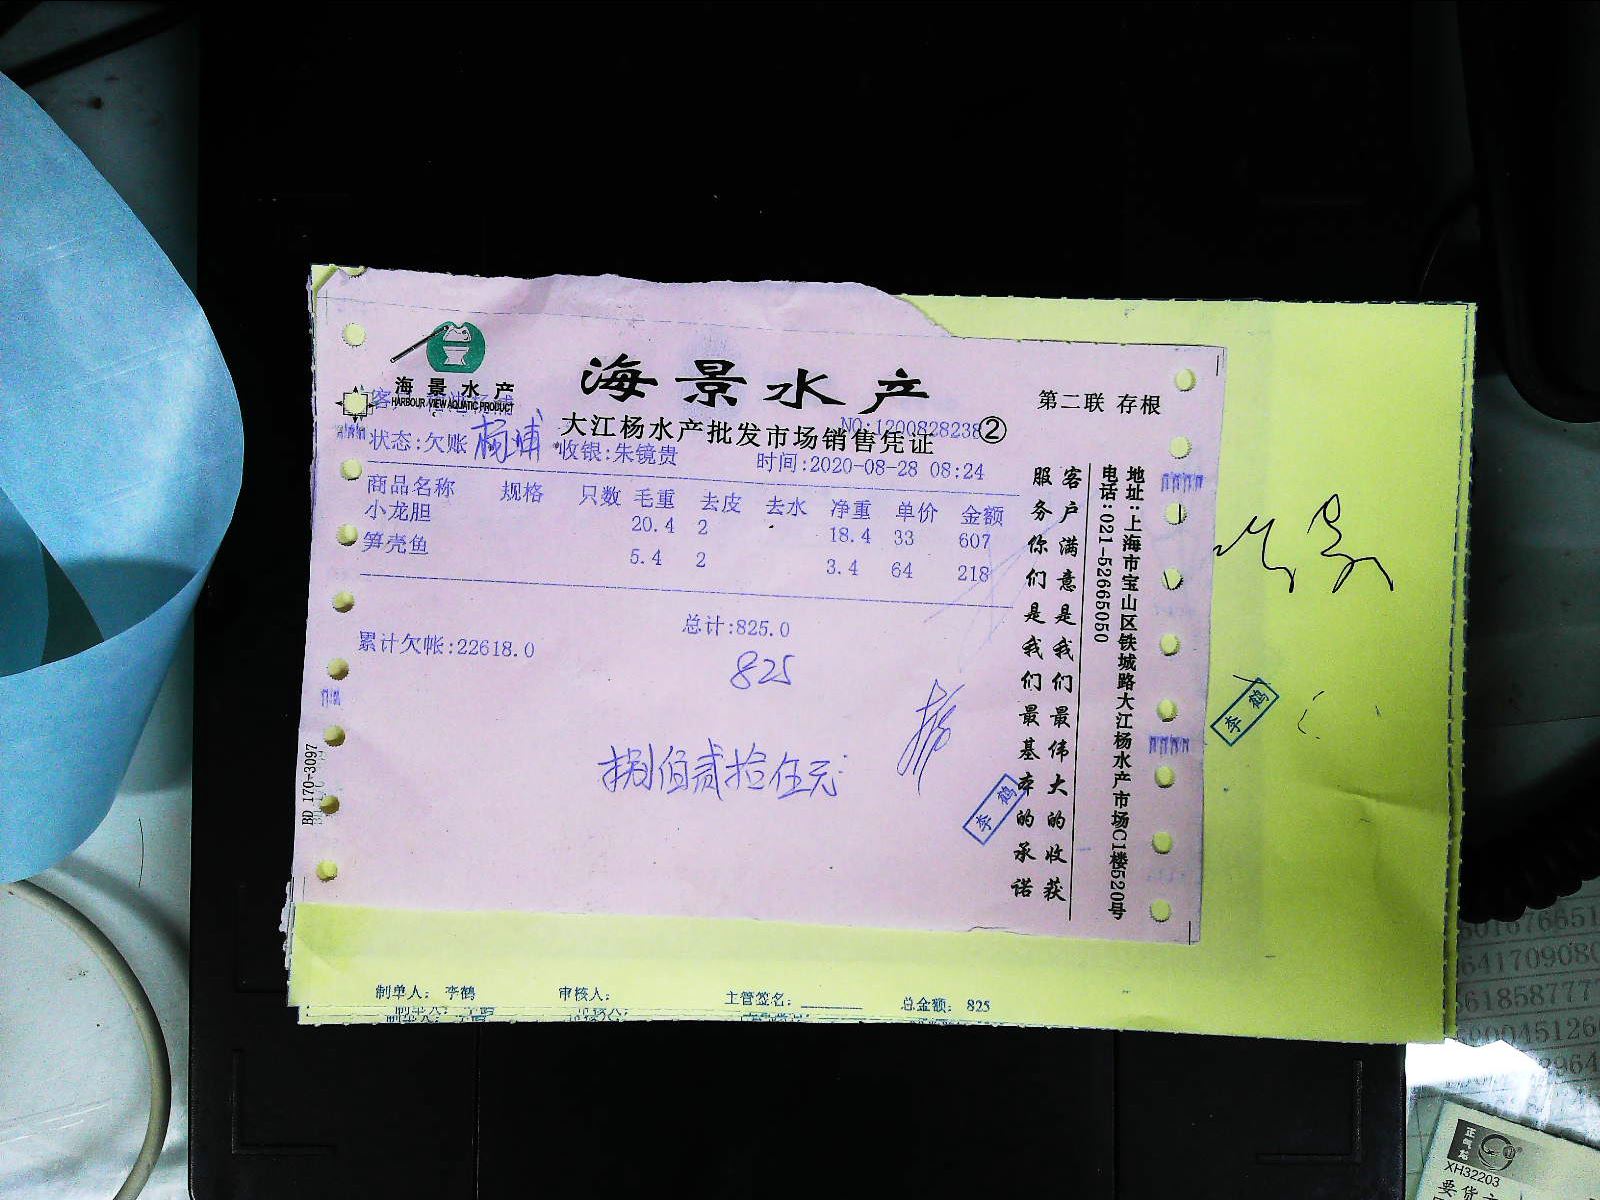 海景水产
HARBOUR VIEW AQUATIC PRODUCT
海景水产
第二联 存根
大江杨水产批发市场销售凭证
NO:1200828238
②
状态:欠账
杨浦
收银:朱镜贵
时间:2020-08-28 08:24
商品名称 规格 只数 毛重 去皮 去水 净重 单价 金额
小龙胆 20.4 2 18.4 33 607
笋壳鱼 5.4 2 3.4 64 218
总计:825.0
累计欠帐:22618.0
825
捌佰贰拾伍元
李鹤
客户满意是我们最伟大的收获
服务你们是我们最基本的承诺
地址:上海市宝山区铁城路大江杨水产市场C1楼520号
电话:021-52665050
BD 170-3097
李鹤
制单人: 李鹤 审核人: 主管签名: 总金额: 825
正气龙
XH32203
要货